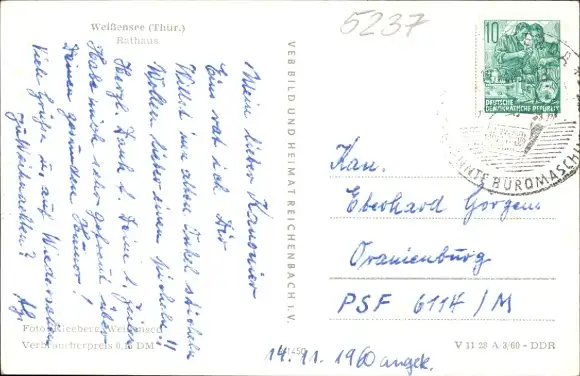 5237
Weißensee (Thür.)
Rathaus
Mein lieber Kanonier
Eins rat ich Dir
Willst im alten Dusel sticheln
Wollen lieber einen picheln!!
Herzl. Dank f. Dein l. Zeilen
Habe mich sehr gefreut über
Deinen gesunden Humor!
Viele Grüße u. auf Wiedersehen
Foto: Rieberg, Weißensee
Verbraucherpreis 0,15 DM
VEB BILD UND HEIMAT REICHENBACH I. V.
10
DEUTSCHE
DEMOKRATISCHE REPUBLIK
BÜROMASCHI
Kan.
Eberhard Görgens
Oranienburg
PSF 6114 / M
14. 11. 1960 angek.
V 11 28 A 3/60 - DDR